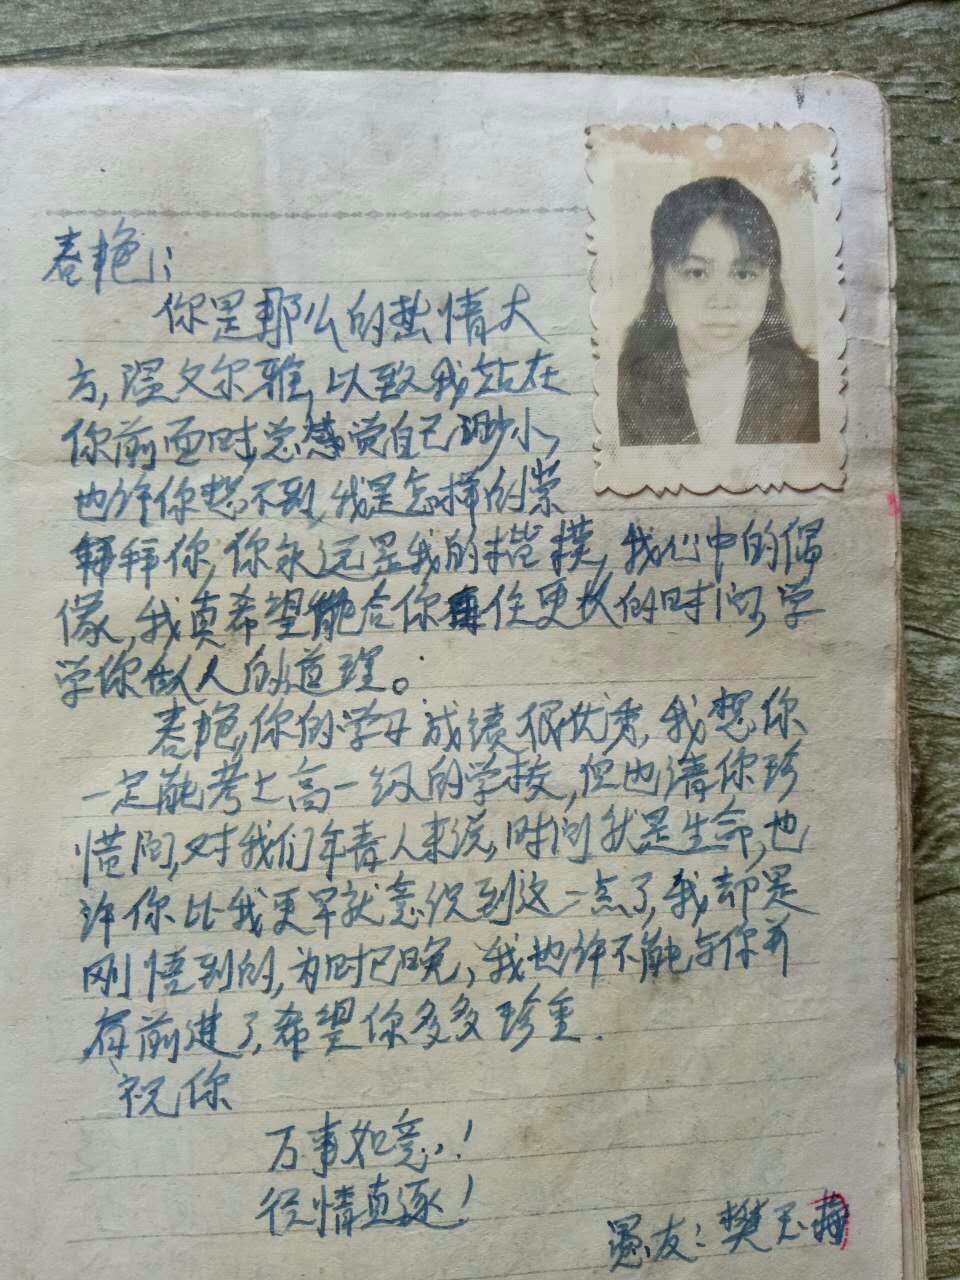 春艳:
你是那么的热情大
方,温文尔雅,以致我站在
你前面时,总感觉自己渺小,
也许你想不到,我是怎样的崇
拜你,你永远是我的楷模,我们中的偶
像,我真希望能合你再住更长的时间,学
学你做人的道理。
春艳,你的学习成绩很优秀,我想你
一定能考上高一级的学校,但也请你珍
惜间,对我们年青人来说,时间就是生命,也
许你比我更早就意识到这一点了,我却是
刚悟到的,为时已晚,我也许不能与你并
肩前进了,希望你多多珍重.
祝你
万事如意!
纵情直逐!
愚友:樊玉梅